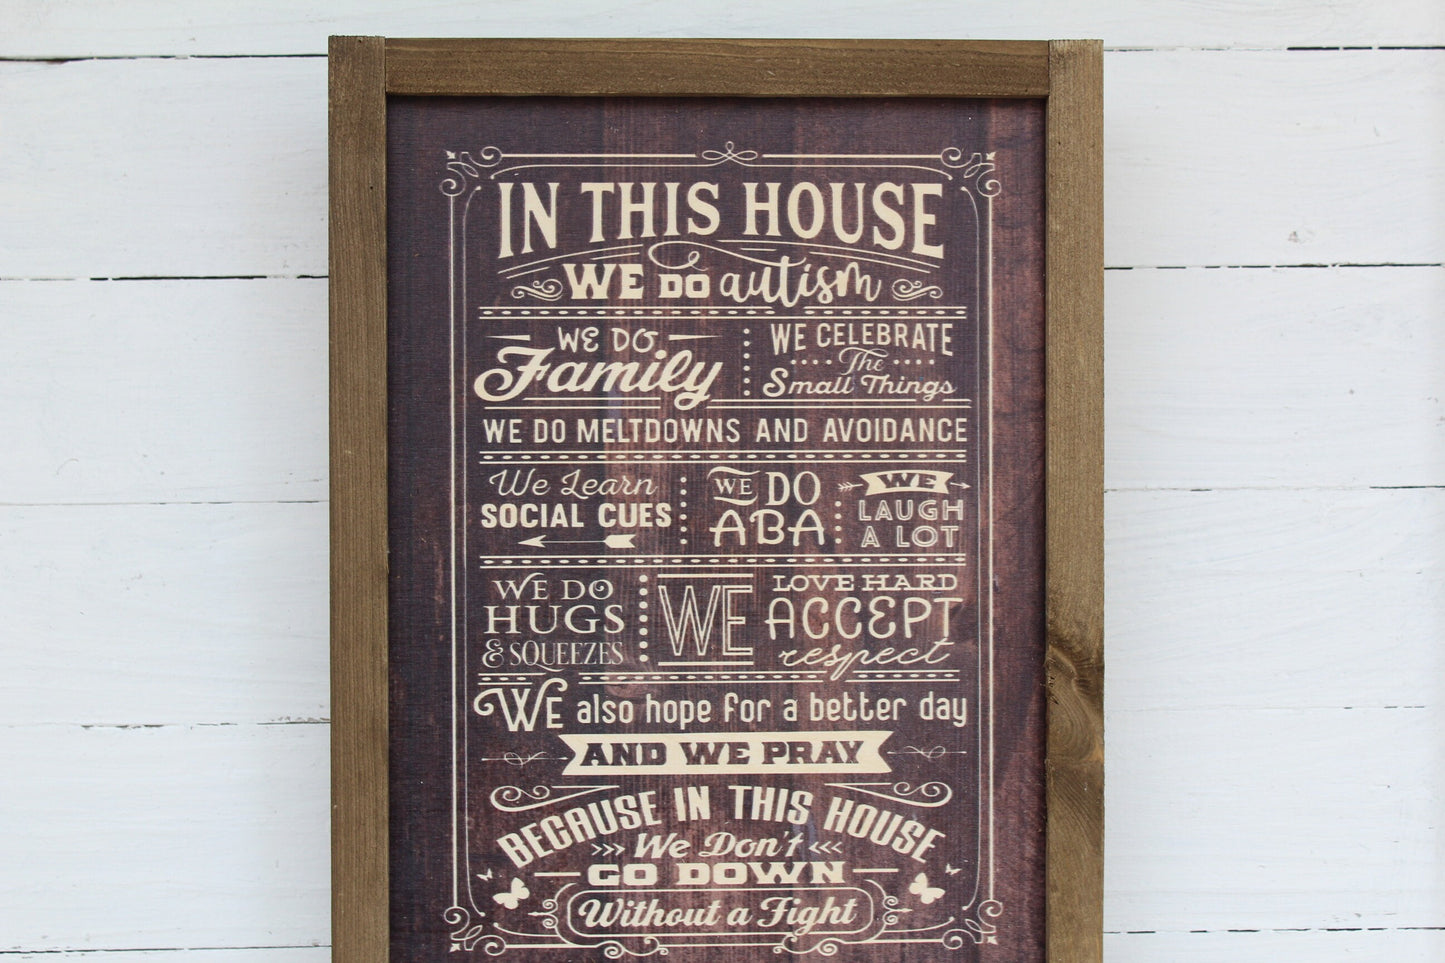 IN THIS HOUSE
WE DO autism
WE DO
Family
WE CELEBRATE
The
Small Things
WE DO MELTDOWNS AND AVOIDANCE
We Learn
SOCIAL CUES
WE DO
ABA
WE
LAUGH
A LOT
WE DO
HUGS
& SQUEEZES
WE
LOVE HARD
ACCEPT
respect
WE also hope for a better day
AND WE PRAY
BECAUSE IN THIS HOUSE
We Don't
GO DOWN
Without a Fight